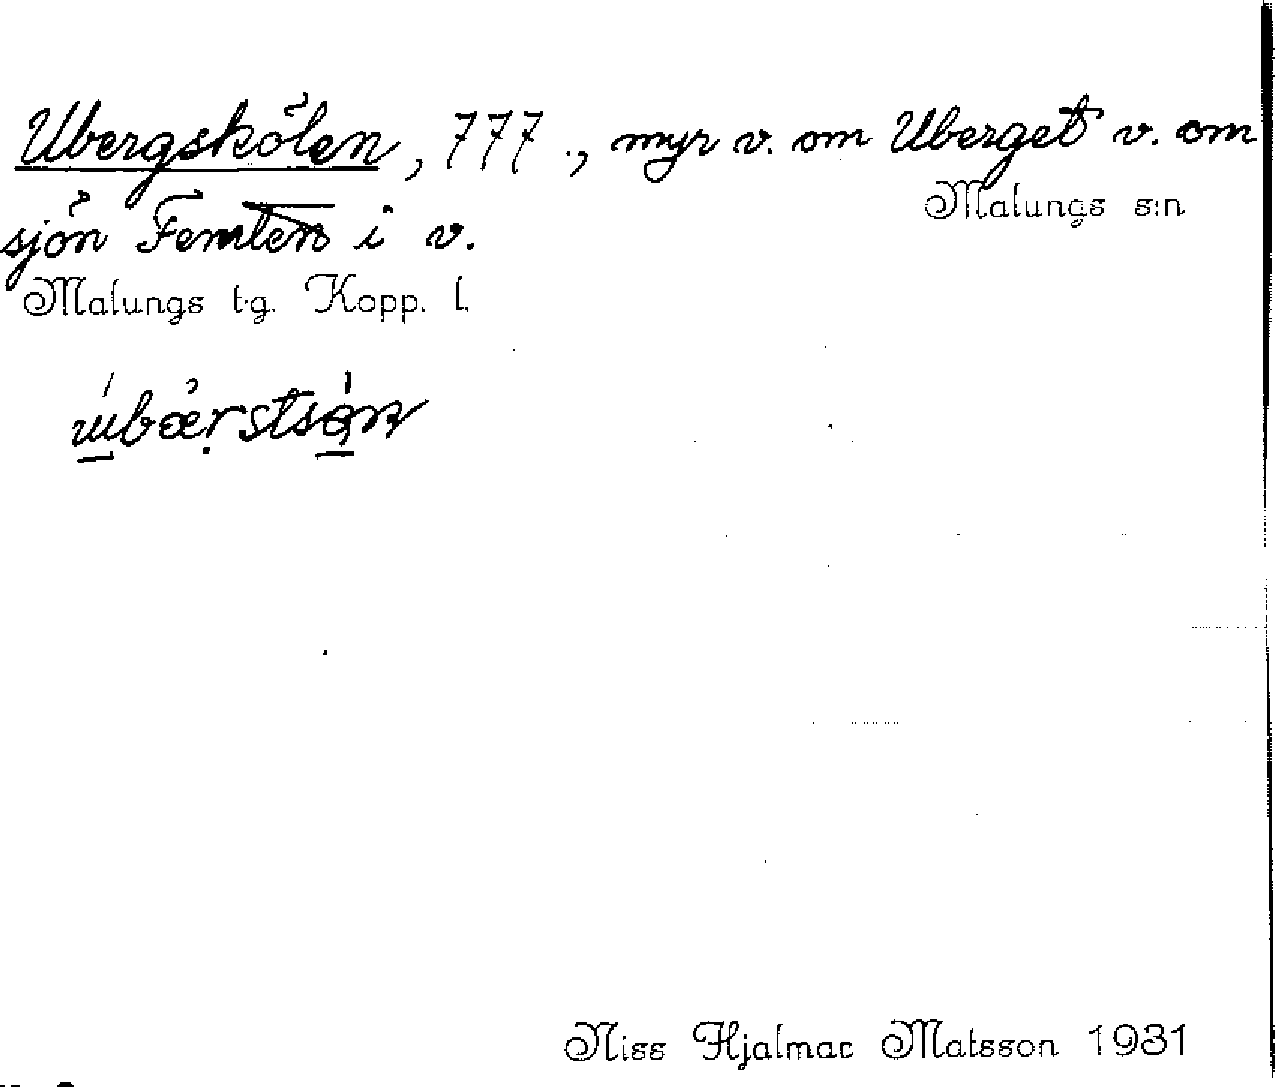 Ubergskölen, 777., myr v. om Uberget v. om
Malungs s:n
sjön Femten i v.
Malungs t.g. Kopp. l.
Niss Hjalmar Matsson 1931